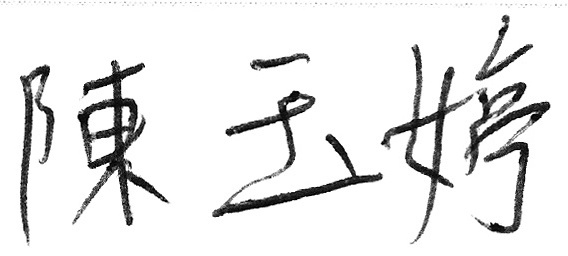 陳玉婷